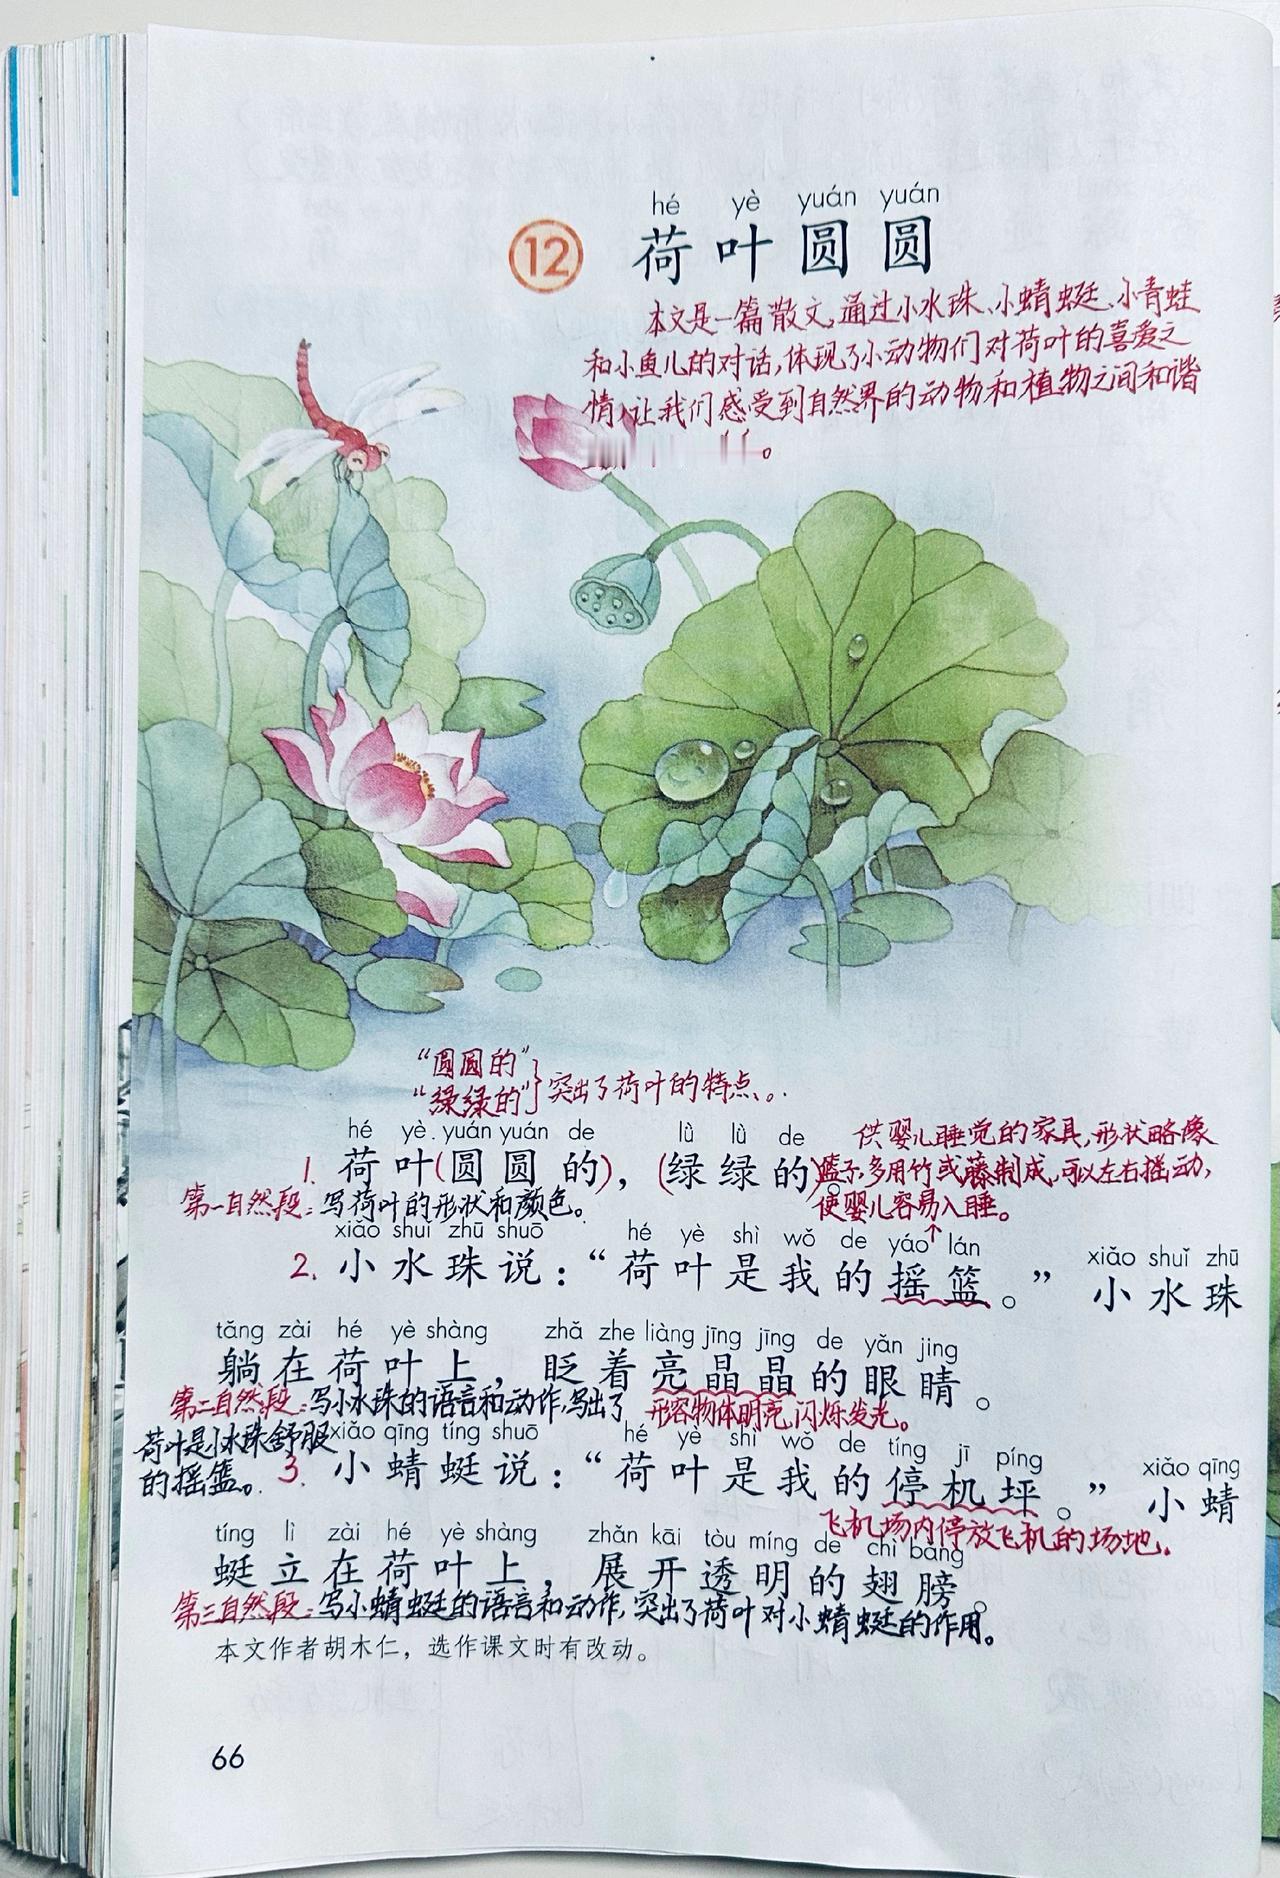 hé yè yuán yuán
12 荷叶圆圆
本文是一篇散文,通过小水珠、小蜻蜓、小青蛙
和小鱼儿的对话,体现了小动物们对荷叶的喜爱之
情,让我们感受到自然界的动物和植物之间和谐
。
“圆圆的”
“绿绿的”}突出了荷叶的特点。
hé yè yuán yuán de lǜ lǜ de
1. 荷叶(圆圆的),(绿绿的)。
供婴儿睡觉的家具,形状略像
篮子,多用竹或藤制成,可以左右摇动,
使婴儿容易入睡。
第一自然段:写荷叶的形状和颜色。
xiǎo shuǐ zhū shuō hé yè shì wǒ de yáo lán xiǎo shuǐ zhū
2. 小水珠说:“荷叶是我的摇篮。”小水珠
tǎng zài hé yè shàng zhǎ zhe liàng jīng jīng de yǎn jing
躺在荷叶上,眨着亮晶晶的眼睛。
第二自然段:写小水珠的语言和动作,写出了
荷叶是小水珠舒服
的摇篮。
形容物体明亮,闪烁发光。
xiǎo qīng tíng shuō hé yè shì wǒ de tíng jī píng xiǎo qīng
3. 小蜻蜓说:“荷叶是我的停机坪。”小蜻
飞机场内停放飞机的场地。
tíng lì zài hé yè shàng zhǎn kāi tòu míng de chì bǎng
蜓立在荷叶上,展开透明的翅膀。
第三自然段:写小蜻蜓的语言和动作,突出了荷叶对小蜻蜓的作用。
本文作者胡木仁,选作课文时有改动。
66